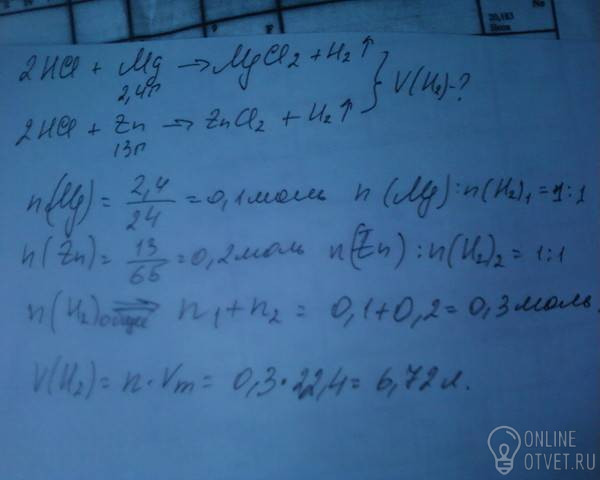 20,183
Неон
No
2HCl + Mg → MgCl2 + H2↑
2,4г
} V(H2)-?
2HCl + Zn → ZnCl2 + H2↑
13г
n(Mg) = 2,4/24 = 0,1моль n(Mg):n(H2)1 = 1:1
n(Zn) = 13/65 = 0,2моль n(Zn):n(H2)2 = 1:1
n(H2)общее n1+n2 = 0,1+0,2 = 0,3моль.
V(H2) = n·Vm = 0,3·22,4 = 6,72л.
ONLINE
OTVET.RU